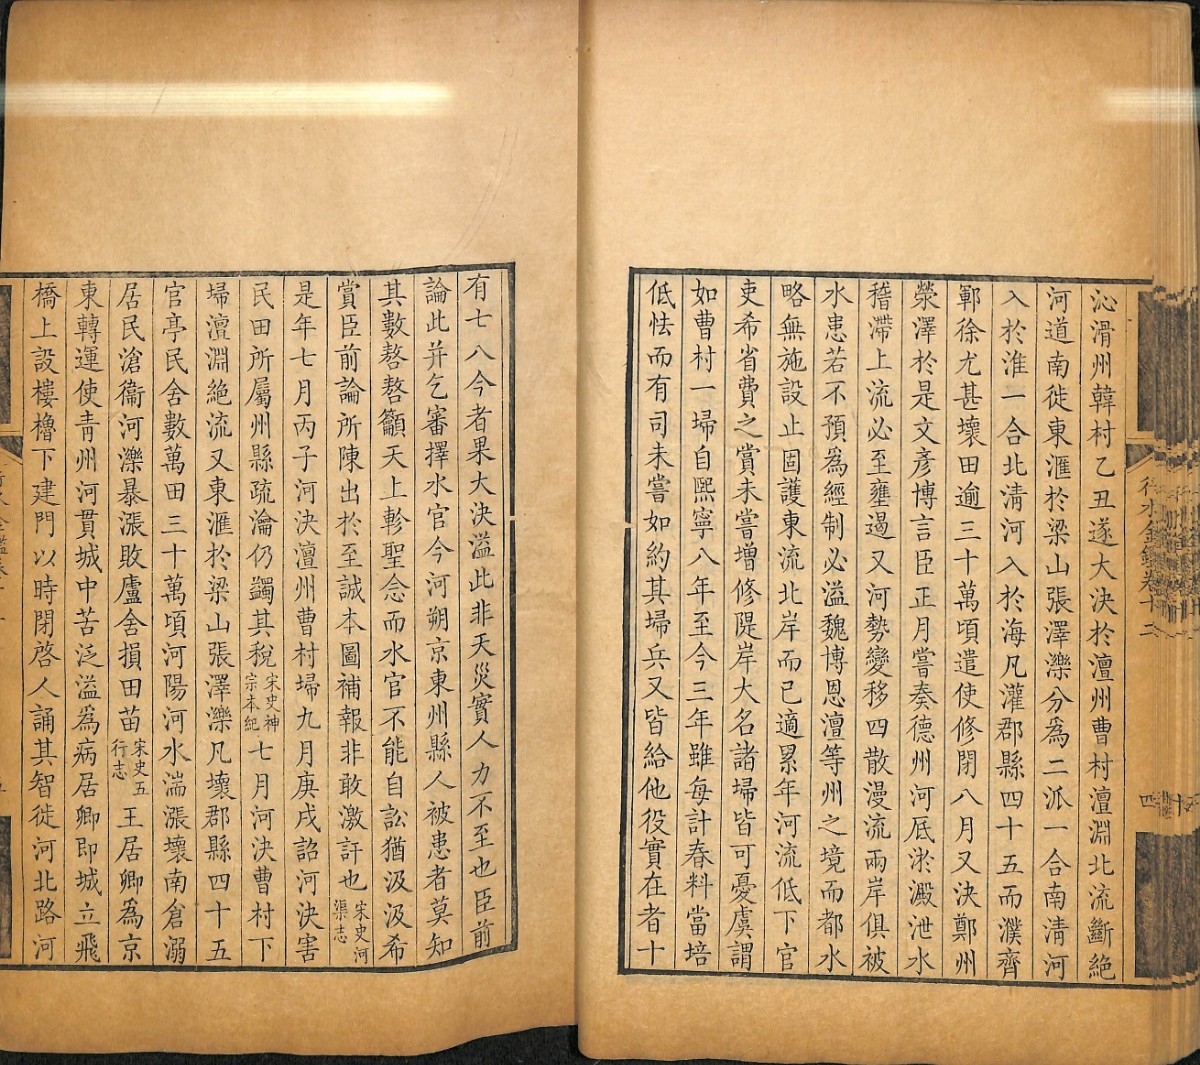 沁滑州韓村乙丑遂大決於澶州曹村澶淵北流斷絕
河道南徙東滙於梁山張澤濼分爲二派一合南淸河
入於淮一合北淸河入於海凡灌郡縣四十五而濮齊
鄆徐尤甚壞田逾三十萬頃遣使修閉八月又決鄭州
滎澤於是文彥博言臣正月嘗奏德州河底淤澱泄水
稽滯上流必至壅遏又河勢變移四散漫流兩岸俱被
水患若不預爲經制必溢魏博恩澶等州之境而都水
略無施設止固護東流北岸而已適累年河流低下官
吏希省費之賞未嘗增修隄岸大名諸埽皆可憂虞謂
如曹村一埽自熙寧八年至今三年雖每計春料當培
低怯而有司未嘗如約其埽兵又皆給他役實在者十
行水金鑑卷十二
四
有七八今者果大決溢此非天災實人力不至也臣前
論此并乞審擇水官今河朔京東州縣人被患者莫知
其數嗸嗸籲天上軫聖念而水官不能自訟猶汲汲希
賞臣前論所陳出於至誠本圖補報非敢激訐也宋史河渠志
是年七月丙子河決澶州曹村埽九月庚戌詔河決害
民田所屬州縣疏瀹仍蠲其稅宋史神宗本紀七月河決曹村下
埽澶淵絕流又東滙於梁山張澤濼凡壞郡縣四十五
官亭民舍數萬田三十萬頃河陽河水湍漲壞南倉溺
居民滄衞河濼暴漲敗廬舍損田苗宋史五行志王居卿爲京
東轉運使靑州河貫城中苦泛溢爲病居卿卽城立飛
橋上設樓櫓下建門以時閉啓人誦其智徙河北路河